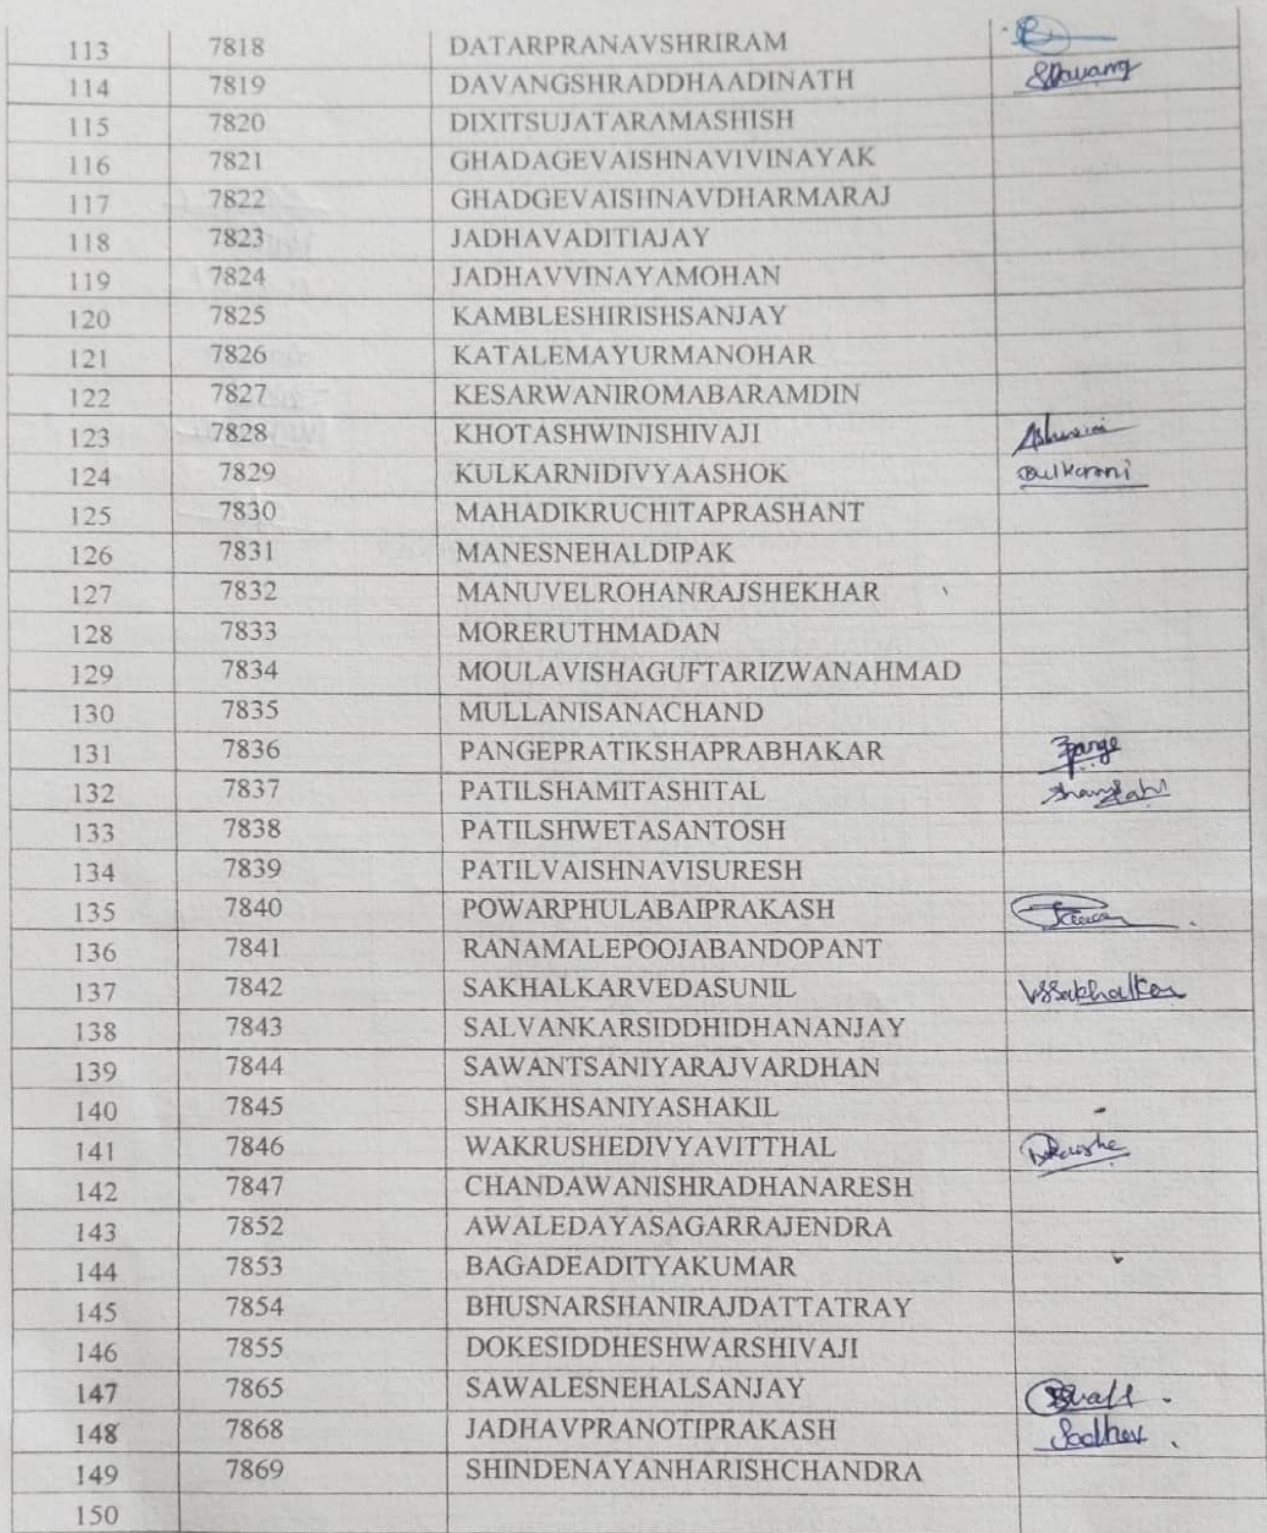 113 7818 DATARPRANAVSHRIRAM
114 7819 DAVANGSHRADDHAADINATH SDavang
115 7820 DIXITSUJATARAMASHISH
116 7821 GHADAGEVAISHNAVIVINAYAK
117 7822 GHADGEVAISHNAVDHARMARAJ
118 7823 JADHAVADITIAJAY
119 7824 JADHAVVINAYAMOHAN
120 7825 KAMBLESHIRISHSANJAY
121 7826 KATALEMAYURMANOHAR
122 7827 KESARWANIROMABARAMDIN
123 7828 KHOTASHWINISHIVAJI Ashwini
124 7829 KULKARNIDIVYAASHOK
125 7830 MAHADIKRUCHITAPRASHANT
126 7831 MANESNEHALDIPAK
127 7832 MANUVELROHANRAJSHEKHAR
128 7833 MORERUTHMADAN
129 7834 MOULAVISHAGUFTARIZWANAHMAD
130 7835 MULLANISANACHAND
131 7836 PANGEPRATIKSHAPRABHAKAR
132 7837 PATILSHAMITASHITAL
133 7838 PATILSHWETASANTOSH
134 7839 PATILVAISHNAVISURESH
135 7840 POWARPHULABAIPRAKASH
136 7841 RANAMALEPOOJABANDOPANT
137 7842 SAKHALKARVEDASUNIL VSSakhalkar
138 7843 SALVANKARSIDDHIDHANANJAY
139 7844 SAWANTSANIYARAJVARDHAN
140 7845 SHAIKHSANIYASHAKIL
141 7846 WAKRUSHEDIVYAVITTHAL
142 7847 CHANDAWANISHRADHANARESH
143 7852 AWALEDAYASAGARRAJENDRA
144 7853 BAGADEADITYAKUMAR
145 7854 BHUSNARSHANIRAJDATTATRAY
146 7855 DOKESIDDHESHWARSHIVAJI
147 7865 SAWALESNEHALSANJAY
148 7868 JADHAVPRANOTIPRAKASH
149 7869 SHINDENAYANHARISHCHANDRA
150